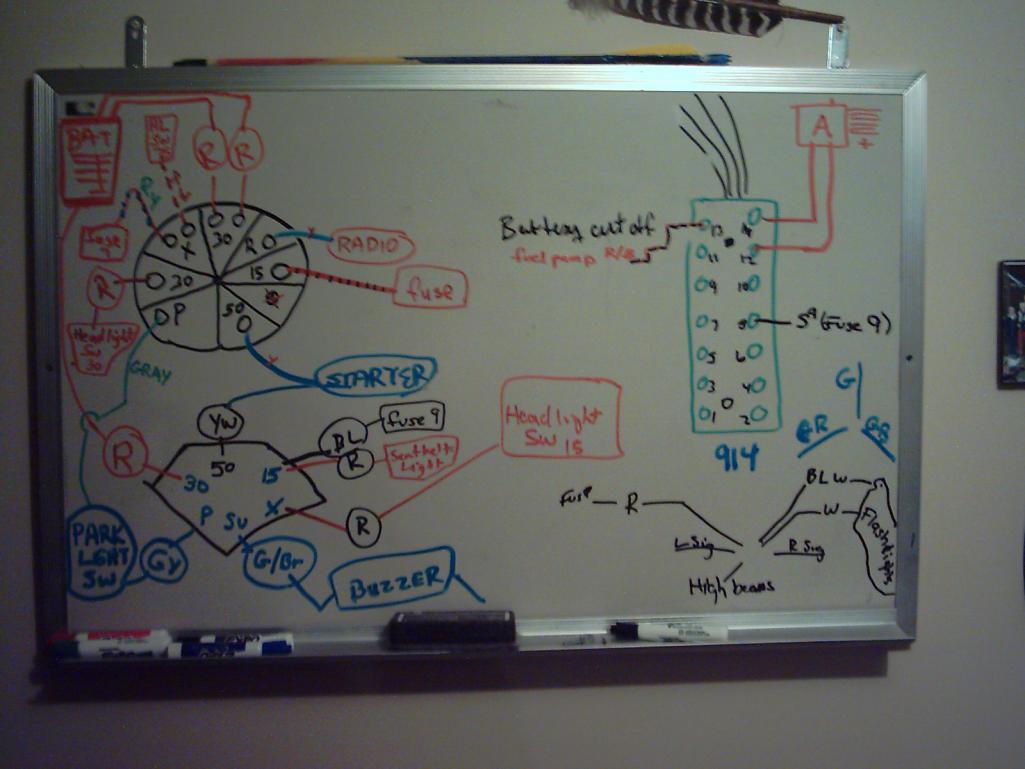 BAT
R
R
A
+
R
30
X
R
RADIO
Fuse
9
15
fuse
R
30
P
50
Headlight
SW
30
GRAY
STARTER
Battery cut off
fuel pump R/B
13
14
11
12
9
10
7
8
5A (Fuse 9)
5
6
3
4
1
2
914
G
YW
50
BL
fuse 9
R
Seatbelt
Light
Headlight
SW 15
R
30
15
X
R
P
Su
PARK
LGHT
SW
Gy
G/Br
BUZZER
GR
BLW
W
Flashlights
Fuse
R
L Sig
R Sig
High beams